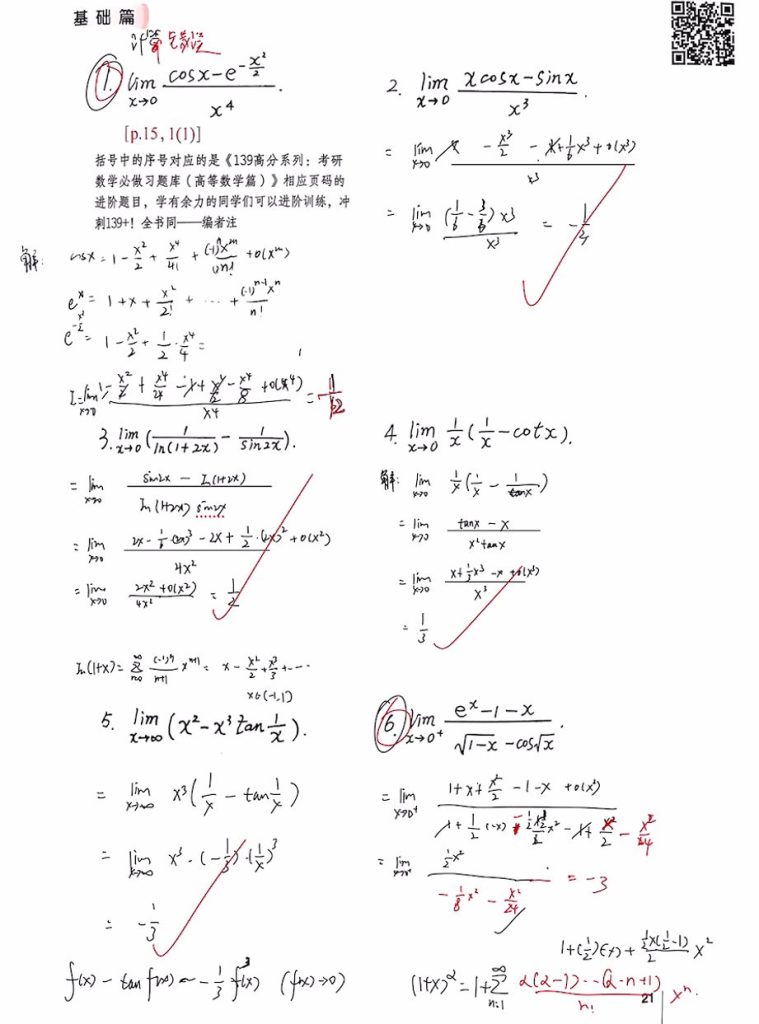 基础篇
计算 与教证
1. lim_{x→0} (cosx - e^{-x²/2}) / x⁴.
[p.15, 1(1)]
括号中的序号对应的是《139高分系列：考研
数学必做习题库（高等数学篇）》相应页码的
进阶题目，学有余力的同学们可以进阶训练，冲
刺139+！全书同——编者注
解: cosx = 1 - x²/2 + x⁴/4! + (-1)ⁿxᵐ/n! + o(xᵐ)
eˣ = 1 + x + x²/2! + ⋯ + (-1)ⁿ⁻¹xⁿ/n!
e^{-x²/2} = 1 - x²/2 + 1/2 · x⁴/4 =
I = lim_{x→0} (1 - x²/2 + x⁴/24 - 1 + x²/2 - x⁴/8 + o(x⁴)) / x⁴ = -1/12
2. lim_{x→0} (xcosx - sinx) / x³.
= lim_{x→0} (x - x³/2 - x + 1/6 x³ + o(x³)) / x³
= lim_{x→0} (1/6 - 3/6) x³ / x³ = -1/3
3. lim_{x→0} (1/ln(1+2x) - 1/sin2x).
= lim_{x→0} (sin2x - ln(1+2x)) / (ln(1+2x) sin2x)
= lim_{x→0} (2x - 1/6 · (2x)³ - 2x + 1/2 · (2x)² + o(x²)) / 4x²
= lim_{x→0} (2x² + o(x²)) / 4x² = 1/2
ln(1+x) = ∑_{n=0}^{∞} (-1)ⁿ/(n+1) xⁿ⁺¹ = x - x²/2 + x³/3 + ⋯
x∈(-1,1)
4. lim_{x→0} 1/x (1/x - cotx).
解: lim_{x→0} 1/x (1/x - 1/tanx)
= lim_{x→0} (tanx - x) / (x² tanx)
= lim_{x→0} (x + 1/3 x³ - x + o(x³)) / x³
= 1/3
5. lim_{x→∞} (x² - x³ tan 1/x).
= lim_{x→∞} x³ (1/x - tan 1/x)
= lim_{x→∞} x³ · (-1/3) · (1/x)³
= -1/3
f(x) - tan f(x) ~ -1/3 f³(x) (f(x)→0)
6. lim_{x→0⁺} (eˣ - 1 - x) / (√(1-x) - cos√x).
= lim_{x→0⁺} (1 + x + x²/2 - 1 - x + o(x²)) / (1 + 1/2 (-x) - x² - 1 + x/2 - x²/24)
= lim_{x→0⁺} (1/2 x²) / (-1/8 x² - x²/24) = -3
1 + (1/2)(-x) + (1/2 × (1/2 - 1))/2 x²
(1+x)^α = 1 + ∑_{n=1}^{∞} α(α-1)⋯(α-n+1)/n! xⁿ.
21